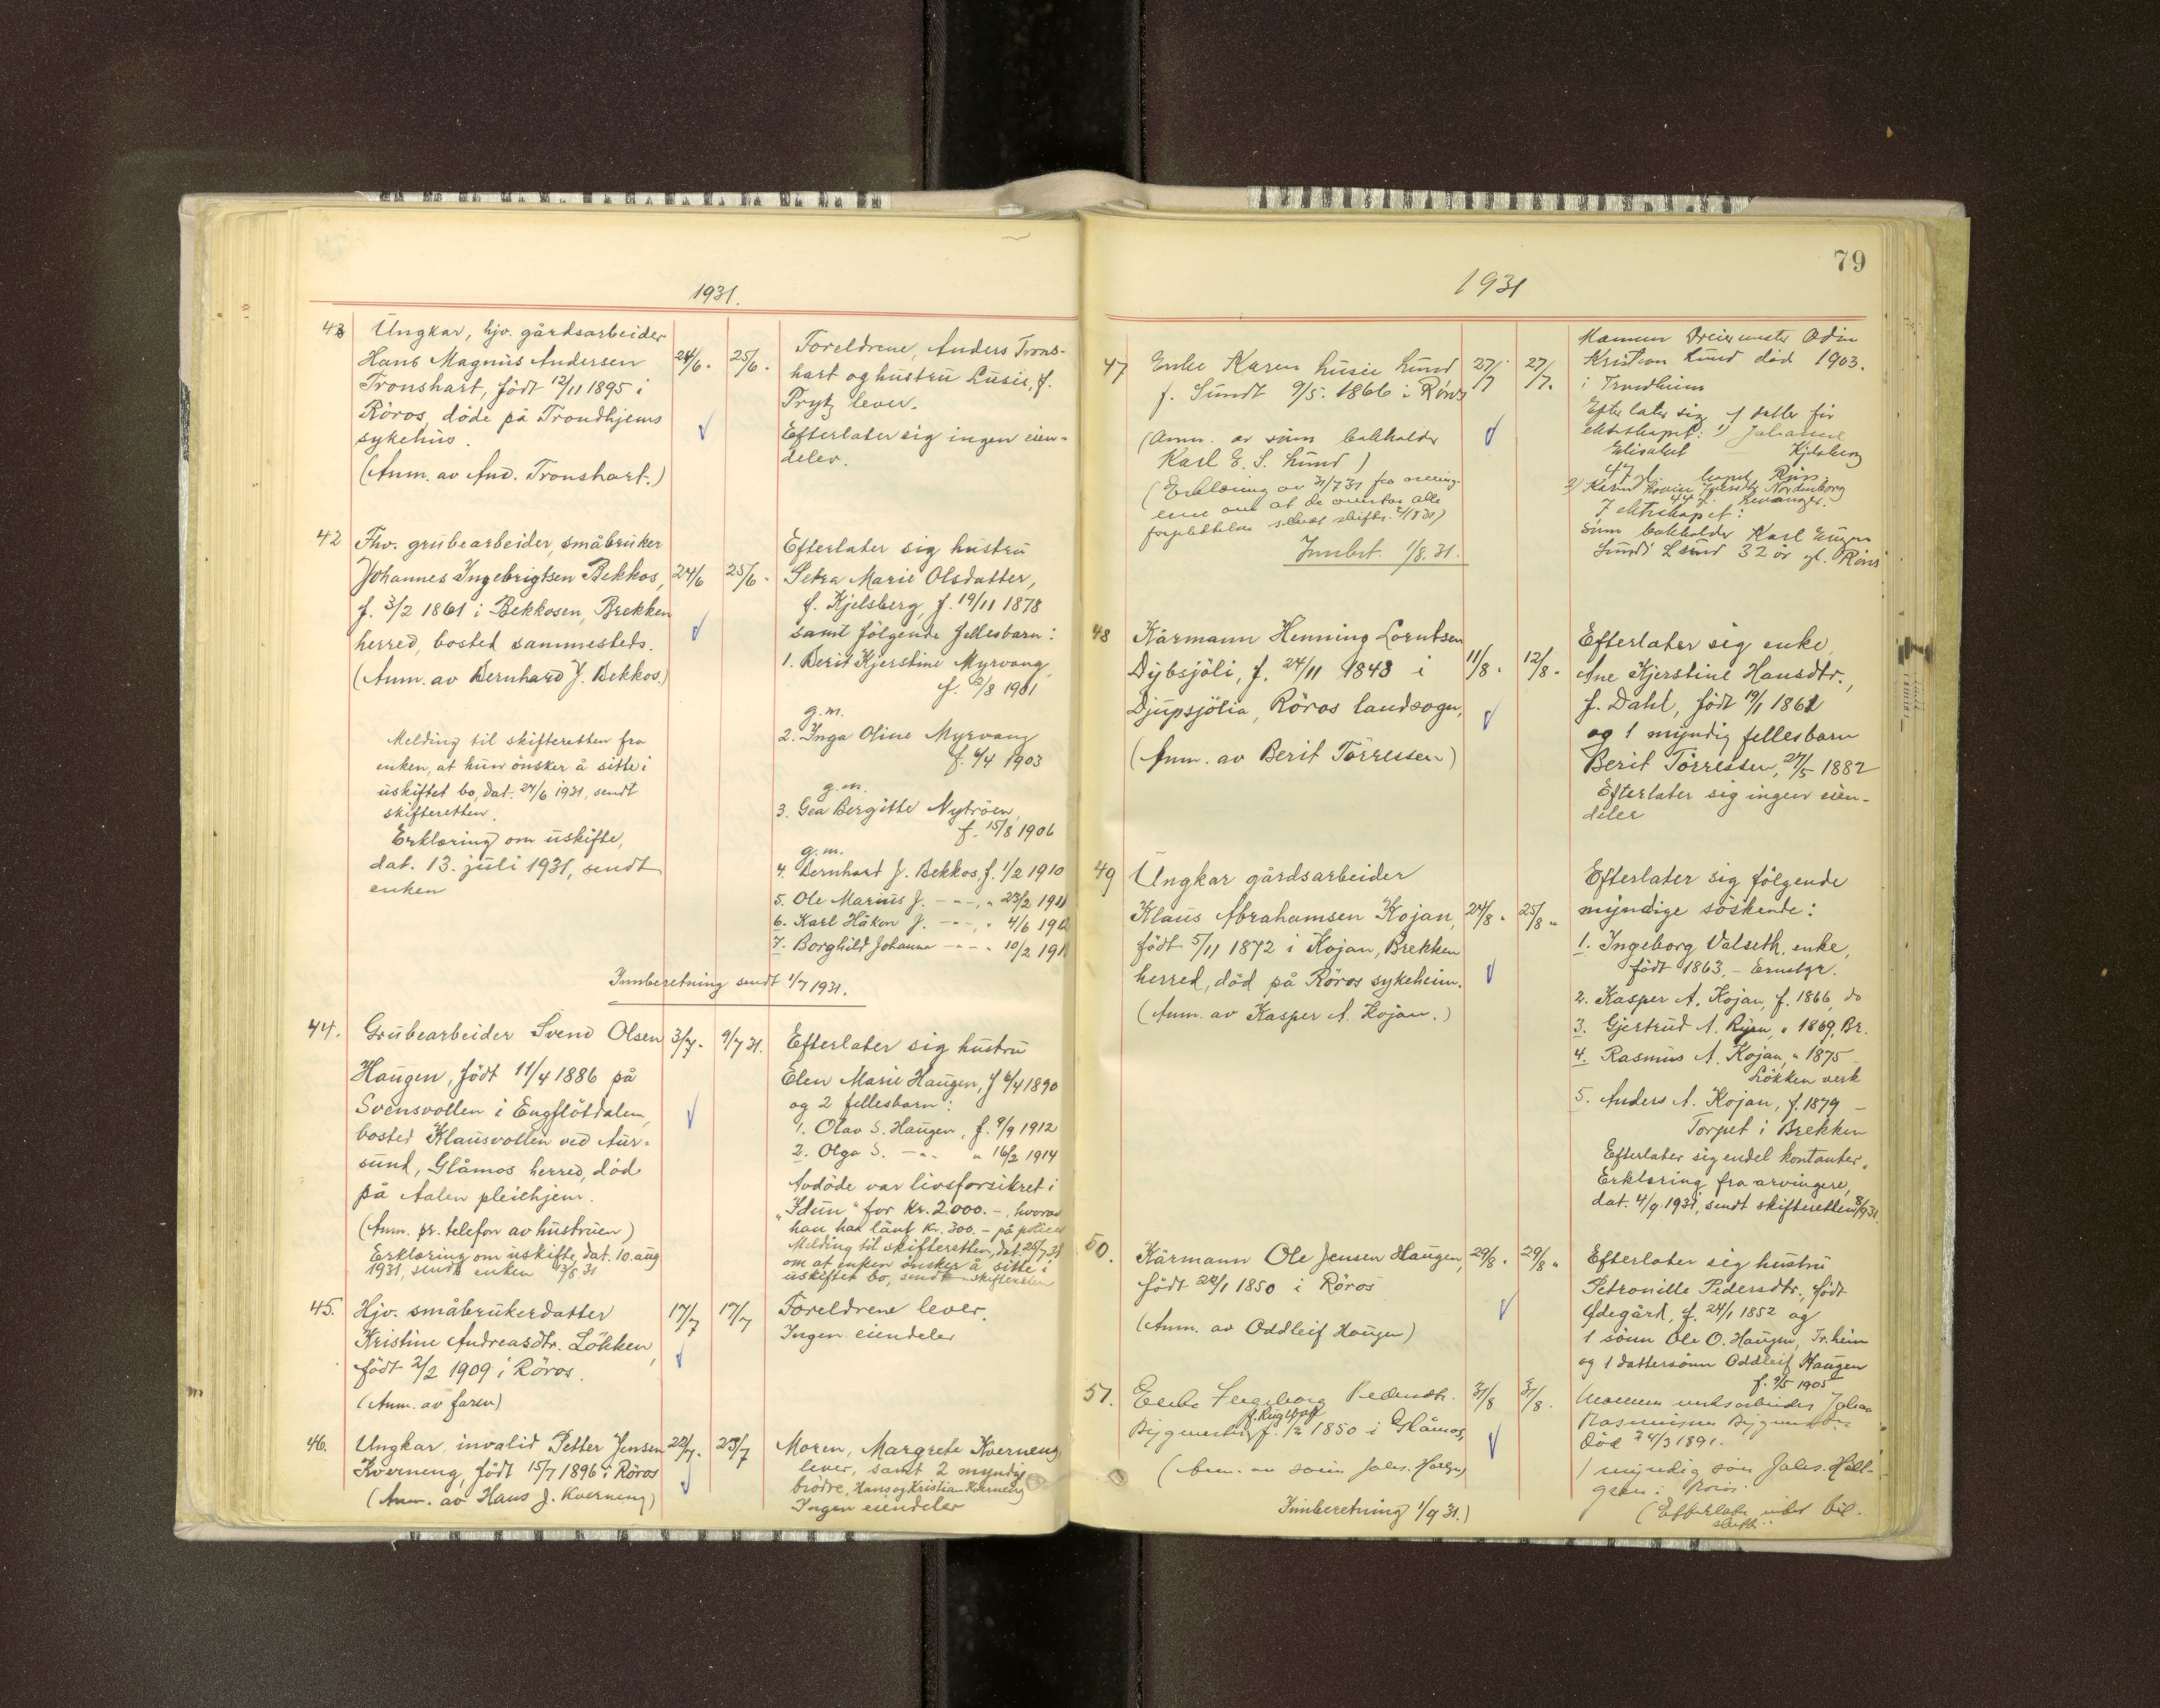 1931.
43 Ungkar, hjv. gårdsarbeider
Hans Magnus Andersen
Tronshart, født 12/11 1895 i
Röros, döde på Trondhjems
sykehus.
(Anm. av And. Tronshart.)
24/6. 25/6.
Foreldrene, Anders Trons-
hart og hustru Lusie, f.
Prytz lever.
Efterlater sig ingen eien-
deler.
42 Fhv. grubearbeider, småbruker
Johannes Ingebrigtsen Bekkos,
f. 3/2 1861 i Bekkosen, Brekken
herred, bosted sammesteds.
(Anm. av Bernhard J. Bekkos.)
24/6 25/6.
Melding til skifteretten fra
enken, at hun önsker å sitte i
uskiftet bo, dat. 27/6 1931, sendt
skifteretten.
Erklæring om uskifte,
dat. 13. juli 1931, sendt
enken
Efterlater sig hustru
Petra Marie Olsdatter,
f. Kjelsberg, f. 19/11 1878
samt fölgende fellesbarn:
1. Berit Kjerstine Myrvang,
f. /8 1901
g.m.
2. Inga Oline Myrvang
f. 6/4 1903
g.m.
3. Gea Bergitte Nytröen,
f. 15/8 1906
g.m.
4. Bernhard J. Bekkos, f. 1/2 1910
5. Ole Marius J. —"—, " 23/2
6. Karl Håkon J. —"—, " 4/6
7. Borghild Johanna —"— " 10/2
Innberetning sendt 1/7 1931.
44. Grubearbeider Svend Olsen
Haugen, födt 11/4 1886 på
Svensvollen i Engflötdalen,
bosted Klausvollen ved Aur-
sund, Glåmos herred, död
på Aalen pleiehjem.
(Anm. pr. telefon av hustruen)
Erklæring om uskifte, dat. 10. aug.
1931, sendt enken 13/8 31
3/7. 9/7 31.
Efterlater sig hustru
Elen Marie Haugen, f 6/4 1890
og 2 fellesbarn:
1. Olav S. Haugen, f. 9/9 1912
2. Olga S. —"— " 16/2 1914
Avdöde var livsforsikret i
"Idun" for kr. 2.000.-, hvorav
han har lånt kr. 300.- på policen
Melding til skifteretten, dat. 25/7 31
om at enken önsker å sitte i
uskiftet bo, sendt skifteretten
45. Hjv. småbrukerdatter
Kristine Andreasdtr. Lökken,
födt 2/2 1909 i Röros.
(Anm. av faren)
17/7 17/7
Foreldrene lever.
Ingen eiendeler
46. Ungkar, invalid Petter Jensen
Kverneng, födt 15/7 1896 i Röros
(Anm. av Hans J. Kverneng)
22/7. 23/7
Moren, Margrete Kverneng
lever, samt 2 myndige
brödre, Hans og Kristian Kverneng
Ingen eiendeler
79
1931
47 Enke Karen Lusie Lund
f. Sundt 9/5. 1866 i Röros
(Anm. av sönn bokholder
Karl E. S. Lund)
(Erklæring av 31/7 31 fra arving-
ene om at de overtar alle
forpliktelser sendt skifter. 1/8 31)
Innbet. 1/8. 31.
27/7 27/7.
Mannen Dreiermester Odin
Kristian Lund död 1903.
i Trondheim
Efterlater sig dötre för
ekteskapet: 1) Johanne
Elisabet Kjelsberg
47 år Röros
2) Karin Nordenborg
44 år Levanger.
I ekteskapet:
Sönn bokholder Karl Eugen
Sundt Lund 32 år gl. Röros
48 Kårmann Henning Lorntsen
Dybsjöli, f. 24/11 1843 i
Djupsjölia, Röros landsogn,
(Anm. av Berit Törressen)
11/8. 12/8.
Efterlater sig enke,
Ane Kjerstine Hansdtr.,
f. Dahl, födt 19/1 1861
og 1 myndig fellesbarn
Berit Törressen, 27/5 1882
Efterlater sig ingen eien-
deler
49 Ungkar gårdsarbeider
Klaus Abrahamsen Kojan,
födt 5/11 1872 i Kojan, Brekken
herred, död på Röros sykeheim.
(Anm. av Kasper A. Kojan.)
24/8. 25/8.
Efterlater sig fölgende
myndige söskende:
1. Ingeborg Valseth, enke,
födt 1863, -
2. Kasper A. Kojan, f. 1866, do
3. Gjertrud A. Ryen, " 1869, Br.
4. Rasmus A. Kojan, " 1875
Lökken verk
5. Anders A. Kojan, f. 1879 —
Torpet i Brekken
Efterlater sig endel kontanter.
Erklæring fra arvingene,
dat. 4/9 1931, sendt skifteretten 8/9 31.
50. Kårmann Ole Jensen Haugen,
födt 22/1 1850 i Röros
(Anm. av Oddleif Haugen)
29/8. 29/8.
Efterlater sig hustru
Petronille Pedersdtr., födt
Ødegård, f. 24/1 1852 og
1 sönn Ole O. Haugen, Tr.heim
og 1 dattersönn Oddleif Haugen
f. 9/5 1905
51. Enke Ingeborg Pedersdtr.
Bygmester, f. 1/2 1850 i Glåmos,
(Anm. av sönn Johs. Hallgren)
31/8 31/8.
Mannen verksarbeider Johan
Rasmussen Bygmester
död 24/3 1891.
1 myndig sön Johs. Hall-
gren i Röros.
(Efterlater intet til
skifte.
Innberetning 1/9 31.)